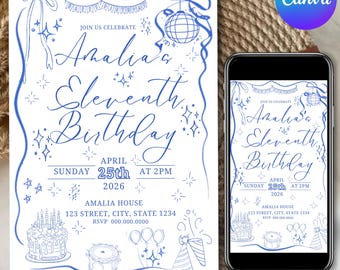 Canva
JOIN US CELEBRATE
Amalia's
Eleventh
Birthday
APRIL
SUNDAY 25th AT 2PM
2026
AMALIA HOUSE
123 STREET, CITY, STATE 1234
RSVP 000.000.0000
JOIN US CELEBRATE
Amalia's
Eleventh
Birthday
APRIL
SUNDAY 25th AT 2PM
2026
AMALIA HOUSE
123 STREET, CITY, STATE 1234
RSVP 000.000.0000